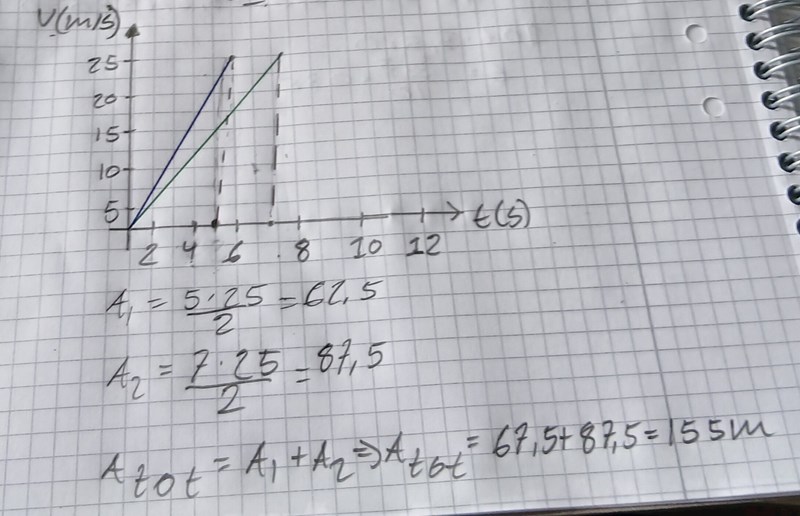 V(m/s)
25
20
15
10
5
2 4 6 8 10 12 t(s)
A₁ = 5·25/2 = 62,5
A₂ = 7·25/2 = 87,5
A tot = A₁ + A₂ ⇒ A tot = 67,5+87,5 = 155m